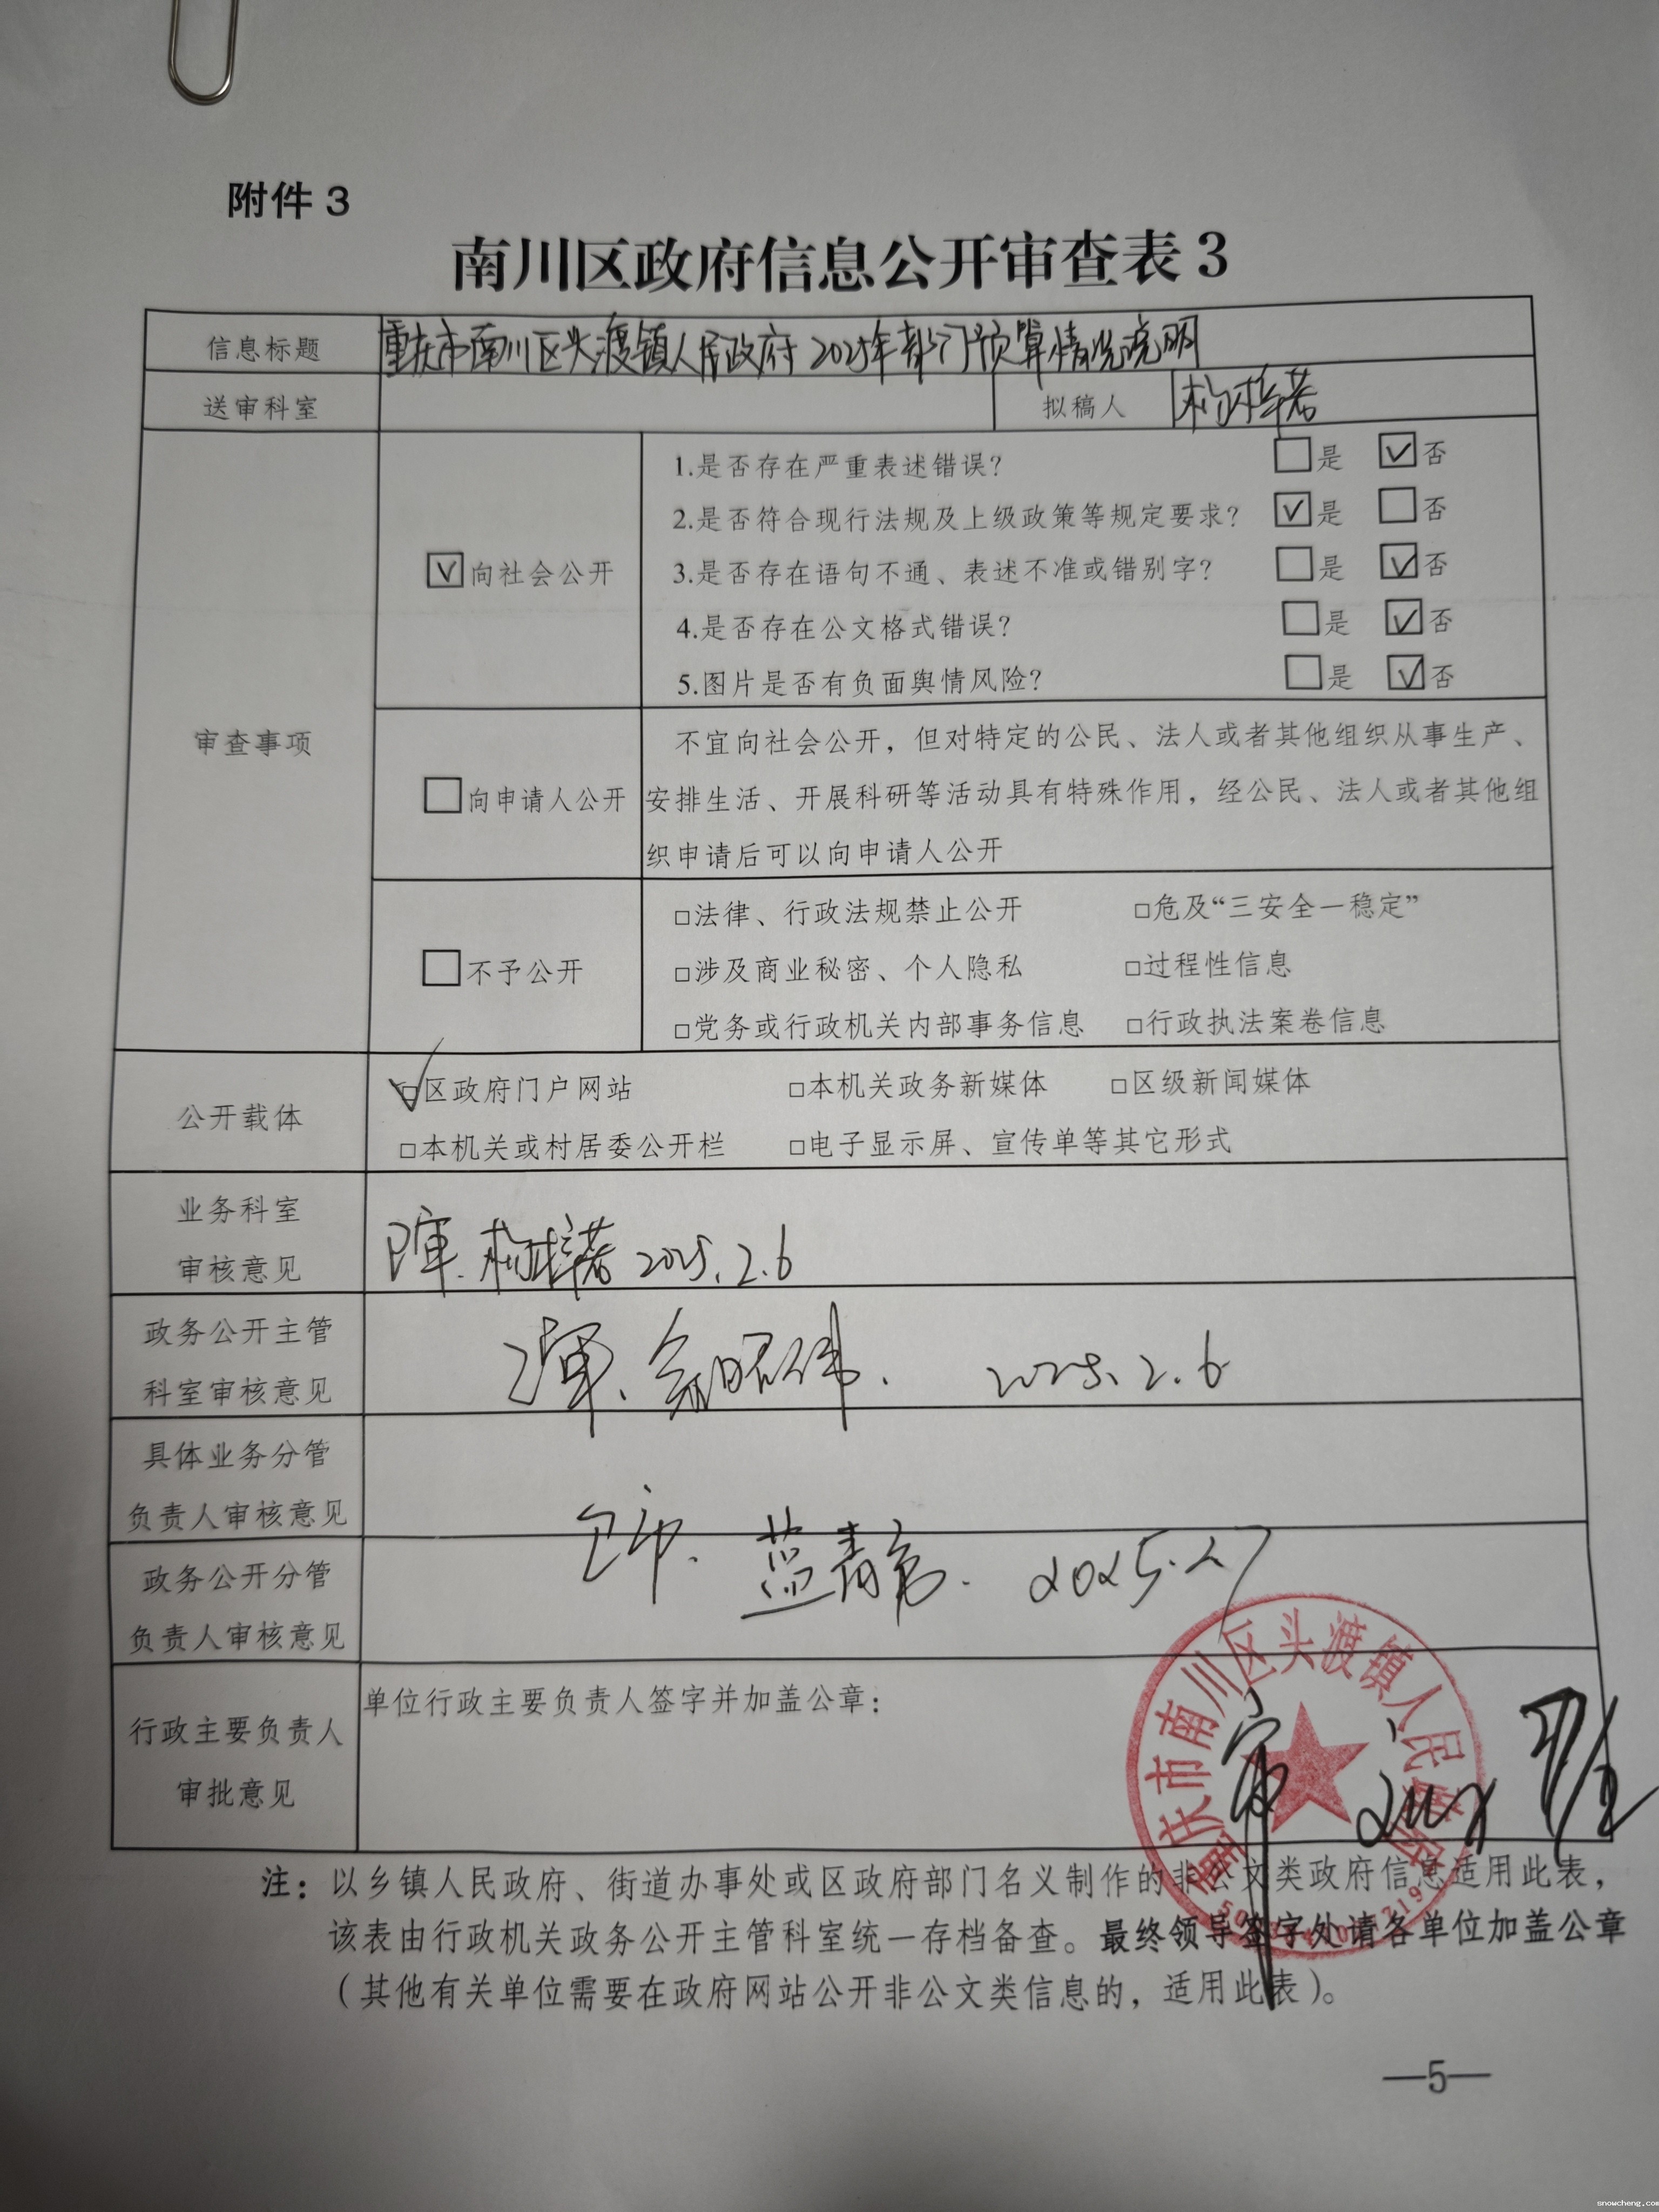 附件 3
南川区政府信息公开审查表 3
信息标题 重庆市南川区头渡镇人民政府 2025年部门预算情况说明
送审科室 拟稿人
审查事项
☑向社会公开
1.是否存在严重表述错误? □是 ☑否
2.是否符合现行法规及上级政策等规定要求? ☑是 □否
3.是否存在语句不通、表述不准或错别字? □是 ☑否
4.是否存在公文格式错误? □是 ☑否
5.图片是否有负面舆情风险? □是 ☑否
□向申请人公开
不宜向社会公开，但对特定的公民、法人或者其他组织从事生产、
安排生活、开展科研等活动具有特殊作用，经公民、法人或者其他组
织申请后可以向申请人公开
□不予公开
□法律、行政法规禁止公开 □危及“三安全一稳定”
□涉及商业秘密、个人隐私 □过程性信息
□党务或行政机关内部事务信息 □行政执法案卷信息
公开载体
☑区政府门户网站 □本机关政务新媒体 □区级新闻媒体
□本机关或村居委公开栏 □电子显示屏、宣传单等其它形式
业务科室
审核意见
2025.2.6
政务公开主管
科室审核意见
2025.2.6
具体业务分管
负责人审核意见
蓝青亮. 2025.2.7
政务公开分管
负责人审核意见
行政主要负责人
审批意见
单位行政主要负责人签字并加盖公章：
重庆市南川区头渡镇人民政府
注：以乡镇人民政府、街道办事处或区政府部门名义制作的非公文类政府信息适用此表，
该表由行政机关政务公开主管科室统一存档备查。最终领导签字处请各单位加盖公章
（其他有关单位需要在政府网站公开非公文类信息的，适用此表）。
—5—
snowcheng.com